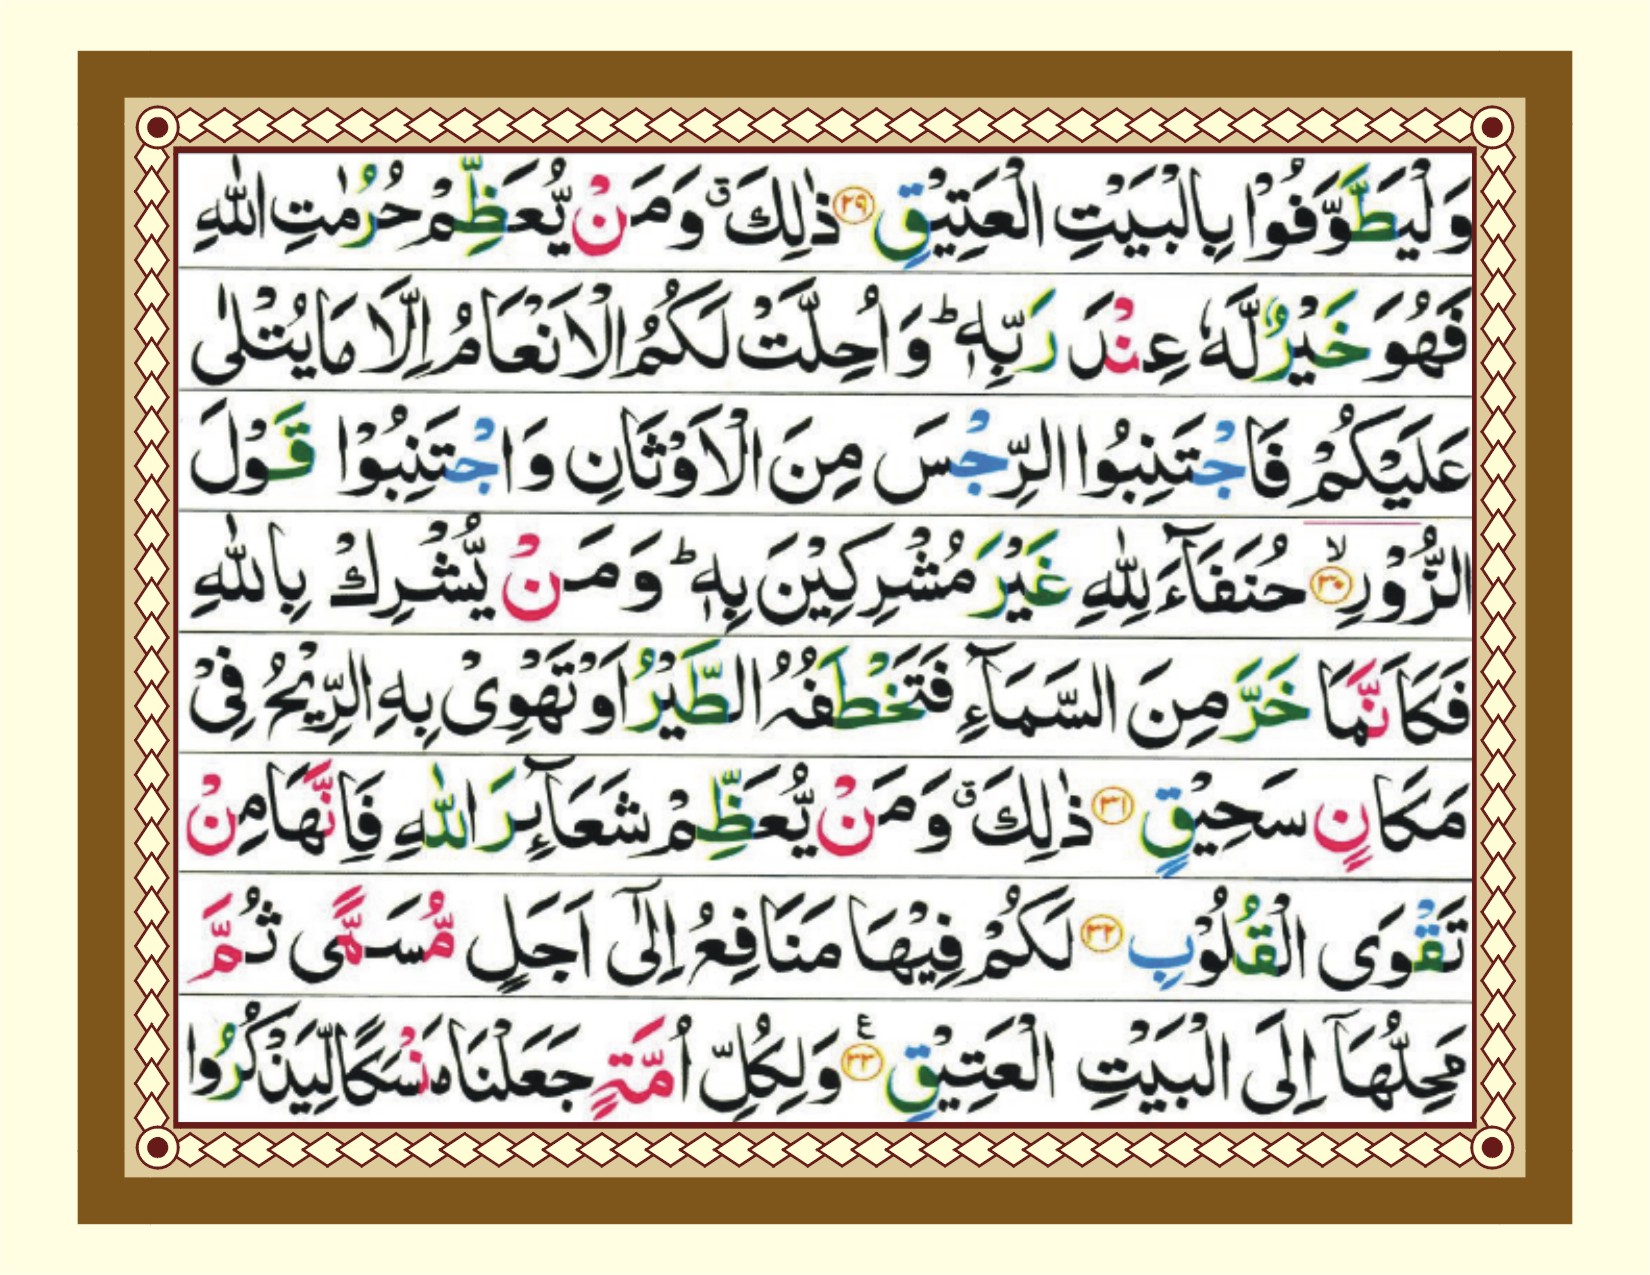 وَلْيَطَّوَّفُوْا بِالْبَيْتِ الْعَتِيْقِ ﴿۲۹﴾ ذٰلِكَ ۗ وَمَنْ يُّعَظِّمْ حُرُمٰتِ اللّٰهِ
فَهُوَ خَيْرٌ لَّهٗ عِنْدَ رَبِّهٖ ؕ وَاُحِلَّتْ لَكُمُ الْاَنْعَامُ اِلَّا مَا يُتْلٰى
عَلَيْكُمْ فَاجْتَنِبُوا الرِّجْسَ مِنَ الْاَوْثَانِ وَاجْتَنِبُوْا قَوْلَ
الزُّوْرِ ﴿۳۰﴾ ۙ حُنَفَآءَ لِلّٰهِ غَيْرَ مُشْرِكِيْنَ بِهٖ ؕ وَمَنْ يُّشْرِكْ بِاللّٰهِ
فَكَاَنَّمَا خَرَّ مِنَ السَّمَآءِ فَتَخْطَفُهُ الطَّيْرُ اَوْ تَهْوِىْ بِهِ الرِّيْحُ فِىْ
مَكَانٍ سَحِيْقٍ ﴿۳۱﴾ ذٰلِكَ ۗ وَمَنْ يُّعَظِّمْ شَعَآئِرَ اللّٰهِ فَاِنَّهَا مِنْ
تَقْوَى الْقُلُوْبِ ﴿۳۲﴾ لَكُمْ فِيْهَا مَنَافِعُ اِلٰٓى اَجَلٍ مُّسَمًّى ثُمَّ
مَحِلُّهَآ اِلَى الْبَيْتِ الْعَتِيْقِ ﴿۳۳﴾ ع وَلِكُلِّ اُمَّةٍ جَعَلْنَا مَنْسَكًا لِّيَذْكُرُوا